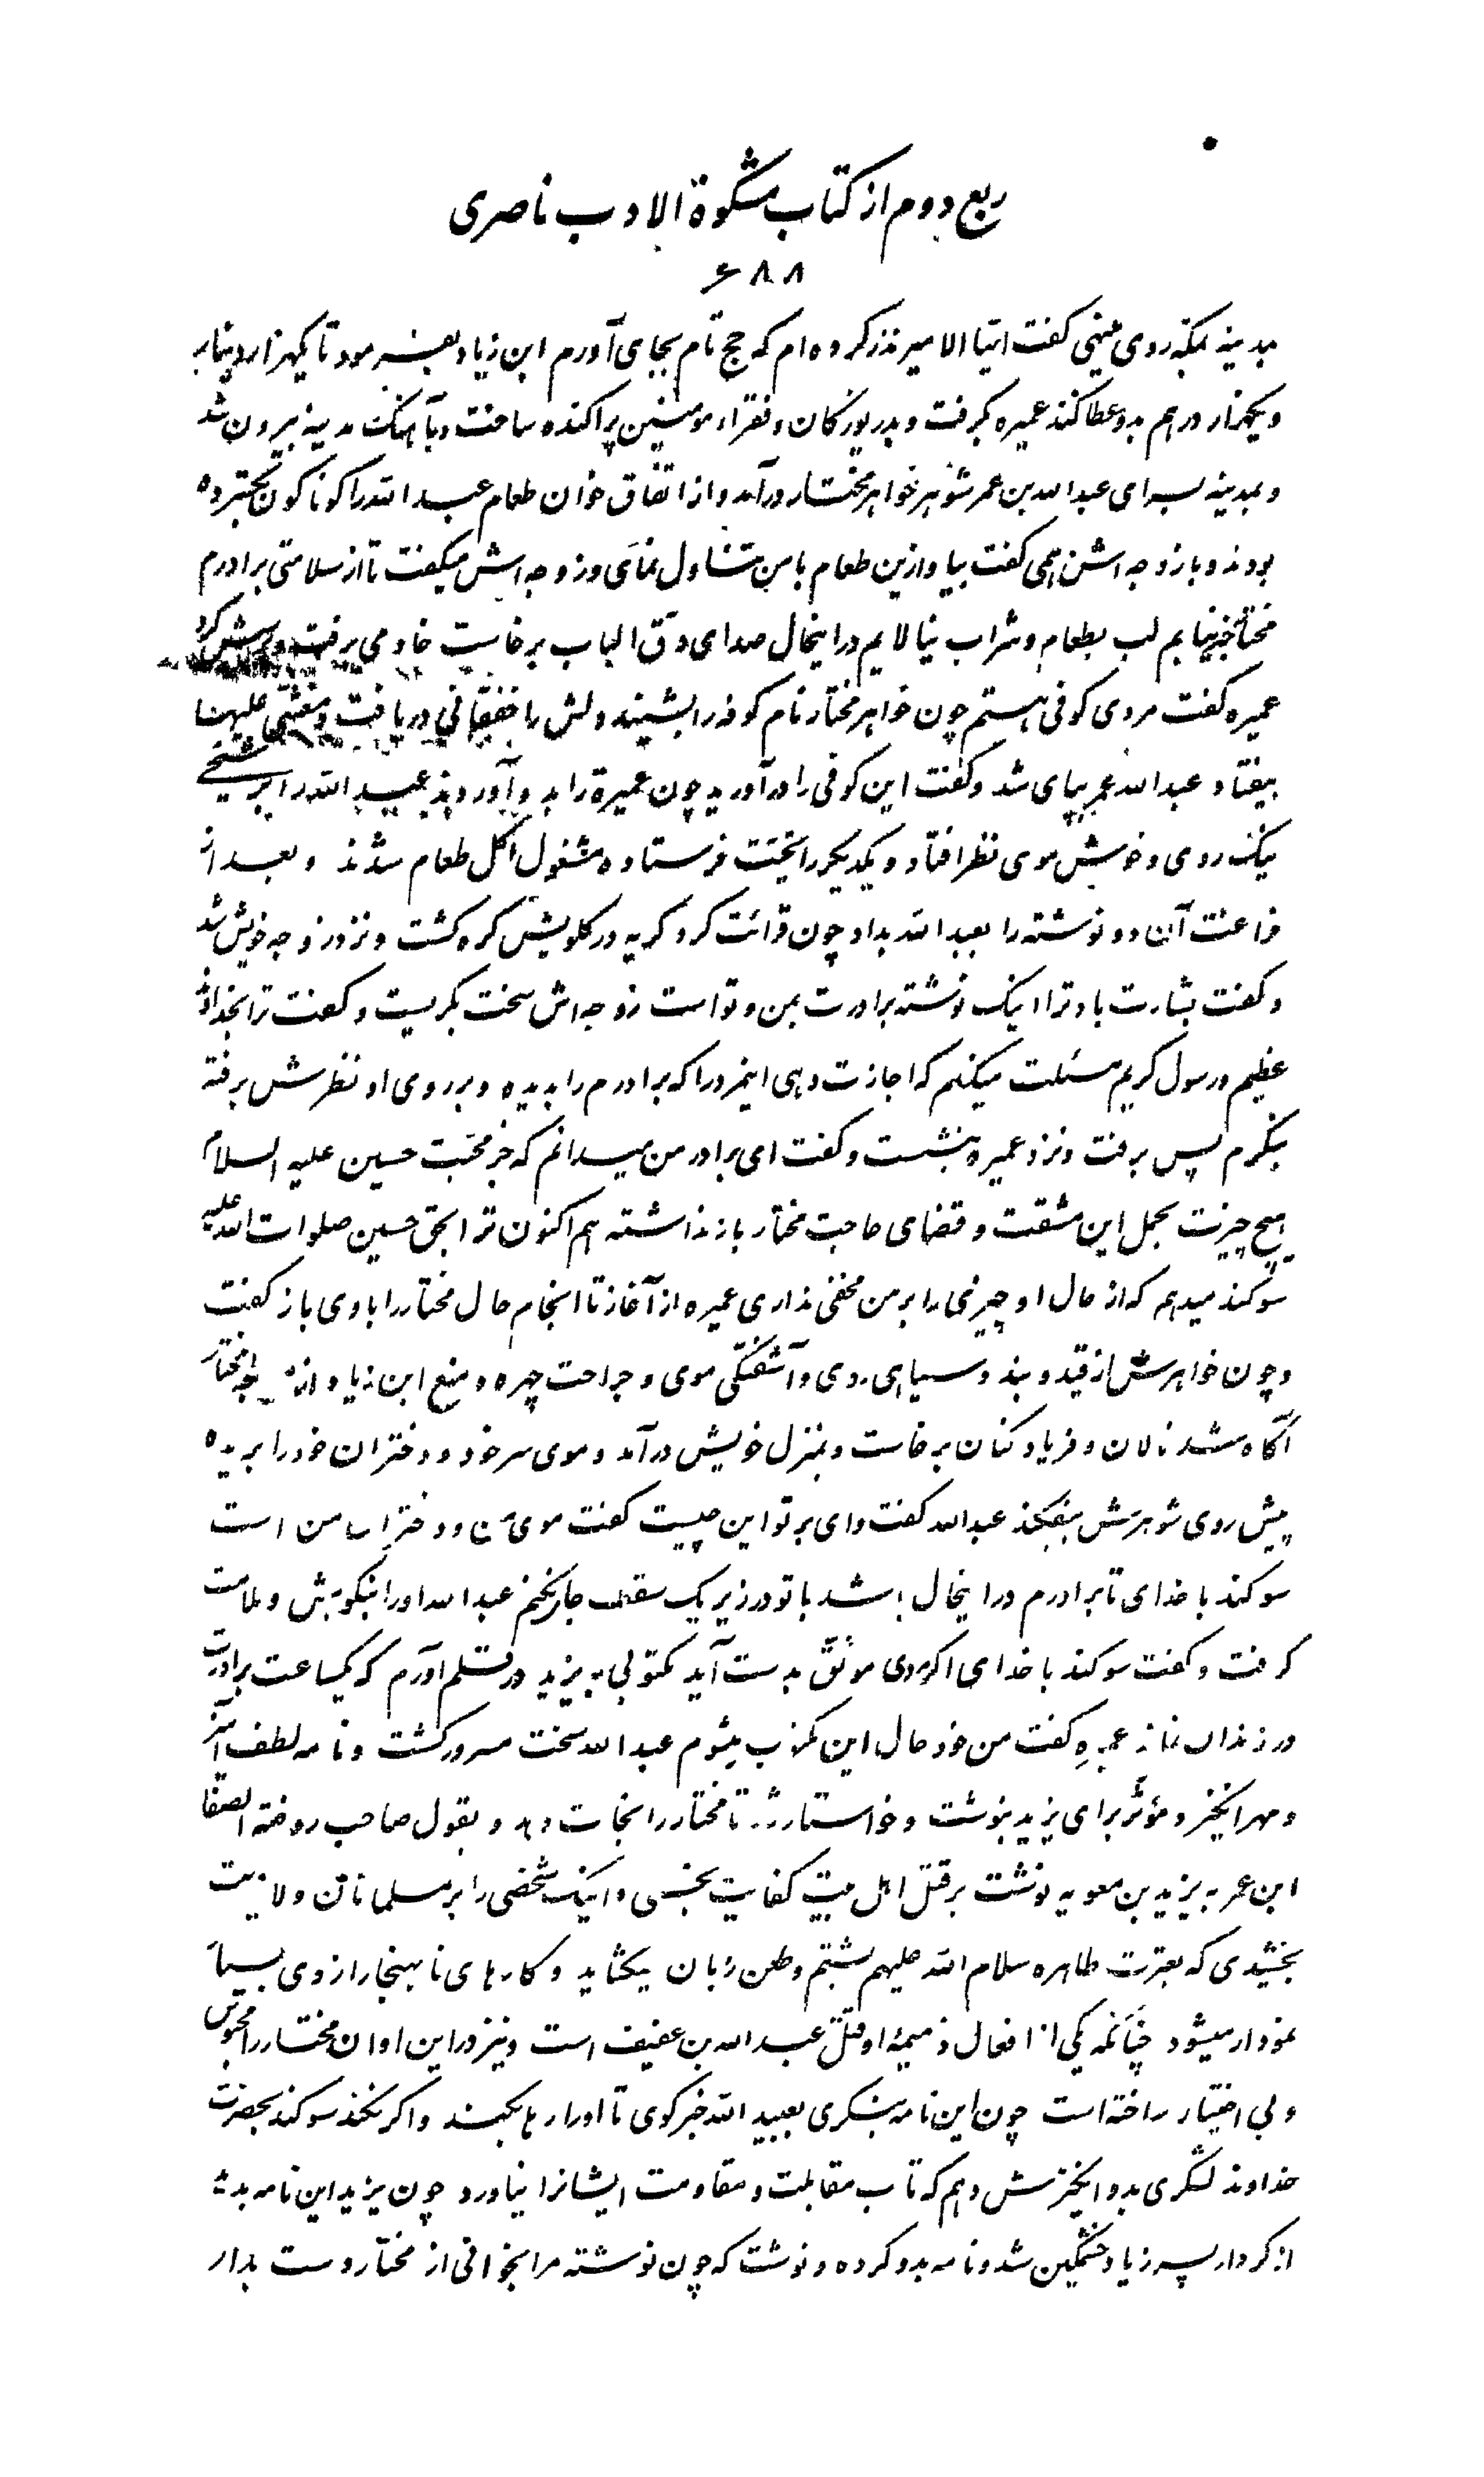 ربع دوم از کتاب مشکوة الادب ناصری
۶۸۸
مدینه بمکه روی مینهی گفت ایها الامیر نذر کرده‌ام که حج تام بجای آورم ابن زیاد بفرمود تا یکهزار دینار
و یکهزار درهم بدو عطا کنند عمیره بگرفت و بدریوزگان و فقراء مومنین پراکنده ساخت و بآهنگ مدینه بیرون شد
و بمدینه بسرای عبدالله بن عمر شوهر خواهر مختار درآمد و از اتفاق خوان طعام عبدالله را گوناگون بگسترده
بودند و با زوجه‌اش همی گفت بیا و ازین طعام با من تناول نمای و زوجه‌اش میگفت تا از سلامتی برادرم
مختار خبر نیابم لب بطعام و شراب نیالایم در اینحال صدای دق الباب برخاست خادمی برفت و پرسش کرد
عمیره گفت مردی کوفی هستم چون خواهر مختار نام کوفه را بشنید دلش را خفقانی دریافت و مغشی علیها
بیفتاد عبدالله عمر بپای شد و گفت این کوفی را درآورید چون عمیرة را بدو آوردند عبدالله را بر شیخی
نیک روی و خوش موی نظر افتاد و یکدیگر را تحیت فرستاده مشغول اکل طعام شدند و بعد از
فراغت آن دو نوشته را بعبدالله بداد چون قرائت کرد گریه در گلویش گره گشت و نزد زوجه خویش شد
و گفت بشارت باد ترا اینک نوشته برادرت بمن و تو است زوجه‌اش سخت بگریست و گفت ترا بخداوند
عظیم و رسول کریم مسئلت میکنم که اجازت دهی اینمرد را که برادرم را بدیده و بر روی او نظرش برفته
بنگرم پس برفت و نزد عمیره بنشست و گفت ای برادر من میدانم که جز محبت حسین علیه السلام
هیچ چیزت بحمل این مشقت و قضای حاجت مختار باز نداشته هم اکنون ترا بحق حسین صلوات الله علیه
سوگند میدهم که از حال او چیزی را بر من مخفی نداری عمیره از آغاز تا انجام حال مختار را با وی باز گفت
و چون خواهرش از قید و بند و سیاهی روی و آشفتگی موی و جراحت چهره و منع ابن زیاد از مختار
آگاه شد نالان و فریاد کنان برخاست و بمنزل خویش درآمد و موی سر خود و دختران خود را بریده
پیش روی شوهرش بیفکند عبدالله گفت وای بر تو این چیست گفت موی من و دختران من است
سوگند با خدای تا برادرم در اینحال باشد با تو در زیر یک سقف جای نکنم عبدالله او را نکوهش و ملامت
گرفت و گفت سوگند با خدای اگر مردی موثق بدست آید مکتوبی به یزید در قلم آورم که یکساعت برادرت
در زندان نماند عمیره گفت من خود حامل این مکتوب میشوم عبدالله سخت مسرور گشت و نامه لطف آمیز
و مهر انگیز و مؤثر برای یزید بنوشت و خواستار شد تا مختار را نجات دهد و بقول صاحب روضة الصفا
ابن عمر به یزید بن معویه نوشت بر قتل اهل بیت کفایت نجستی و اینک شخصی را بر مسلمانان ولایت
بخشیدی که بعترت طاهره سلام الله علیهم بشتم و طعن زبان میگشاید و کارهای ناهنجار از وی بسیار
نمودار میشود چنانکه یکی از افعال ذمیمهٔ او قتل عبدالله بن عفیف است و نیز در این اوان مختار را محبوس
و بی اختیار ساخته است چون این نامه بنگری بعبید الله خبر گوی تا او را رها بکند و اگر نکند سوگند بحضرت
خداوند لشگری بدو انگیزش دهم که تاب مقابلت و مقاومت ایشانرا نیاورد چون یزید این نامه بدید
از کردار پسر زیاد خشمگین شد و نامه بدو کرده و نوشت که چون نوشته مرا بخوانی از مختار دست بدار